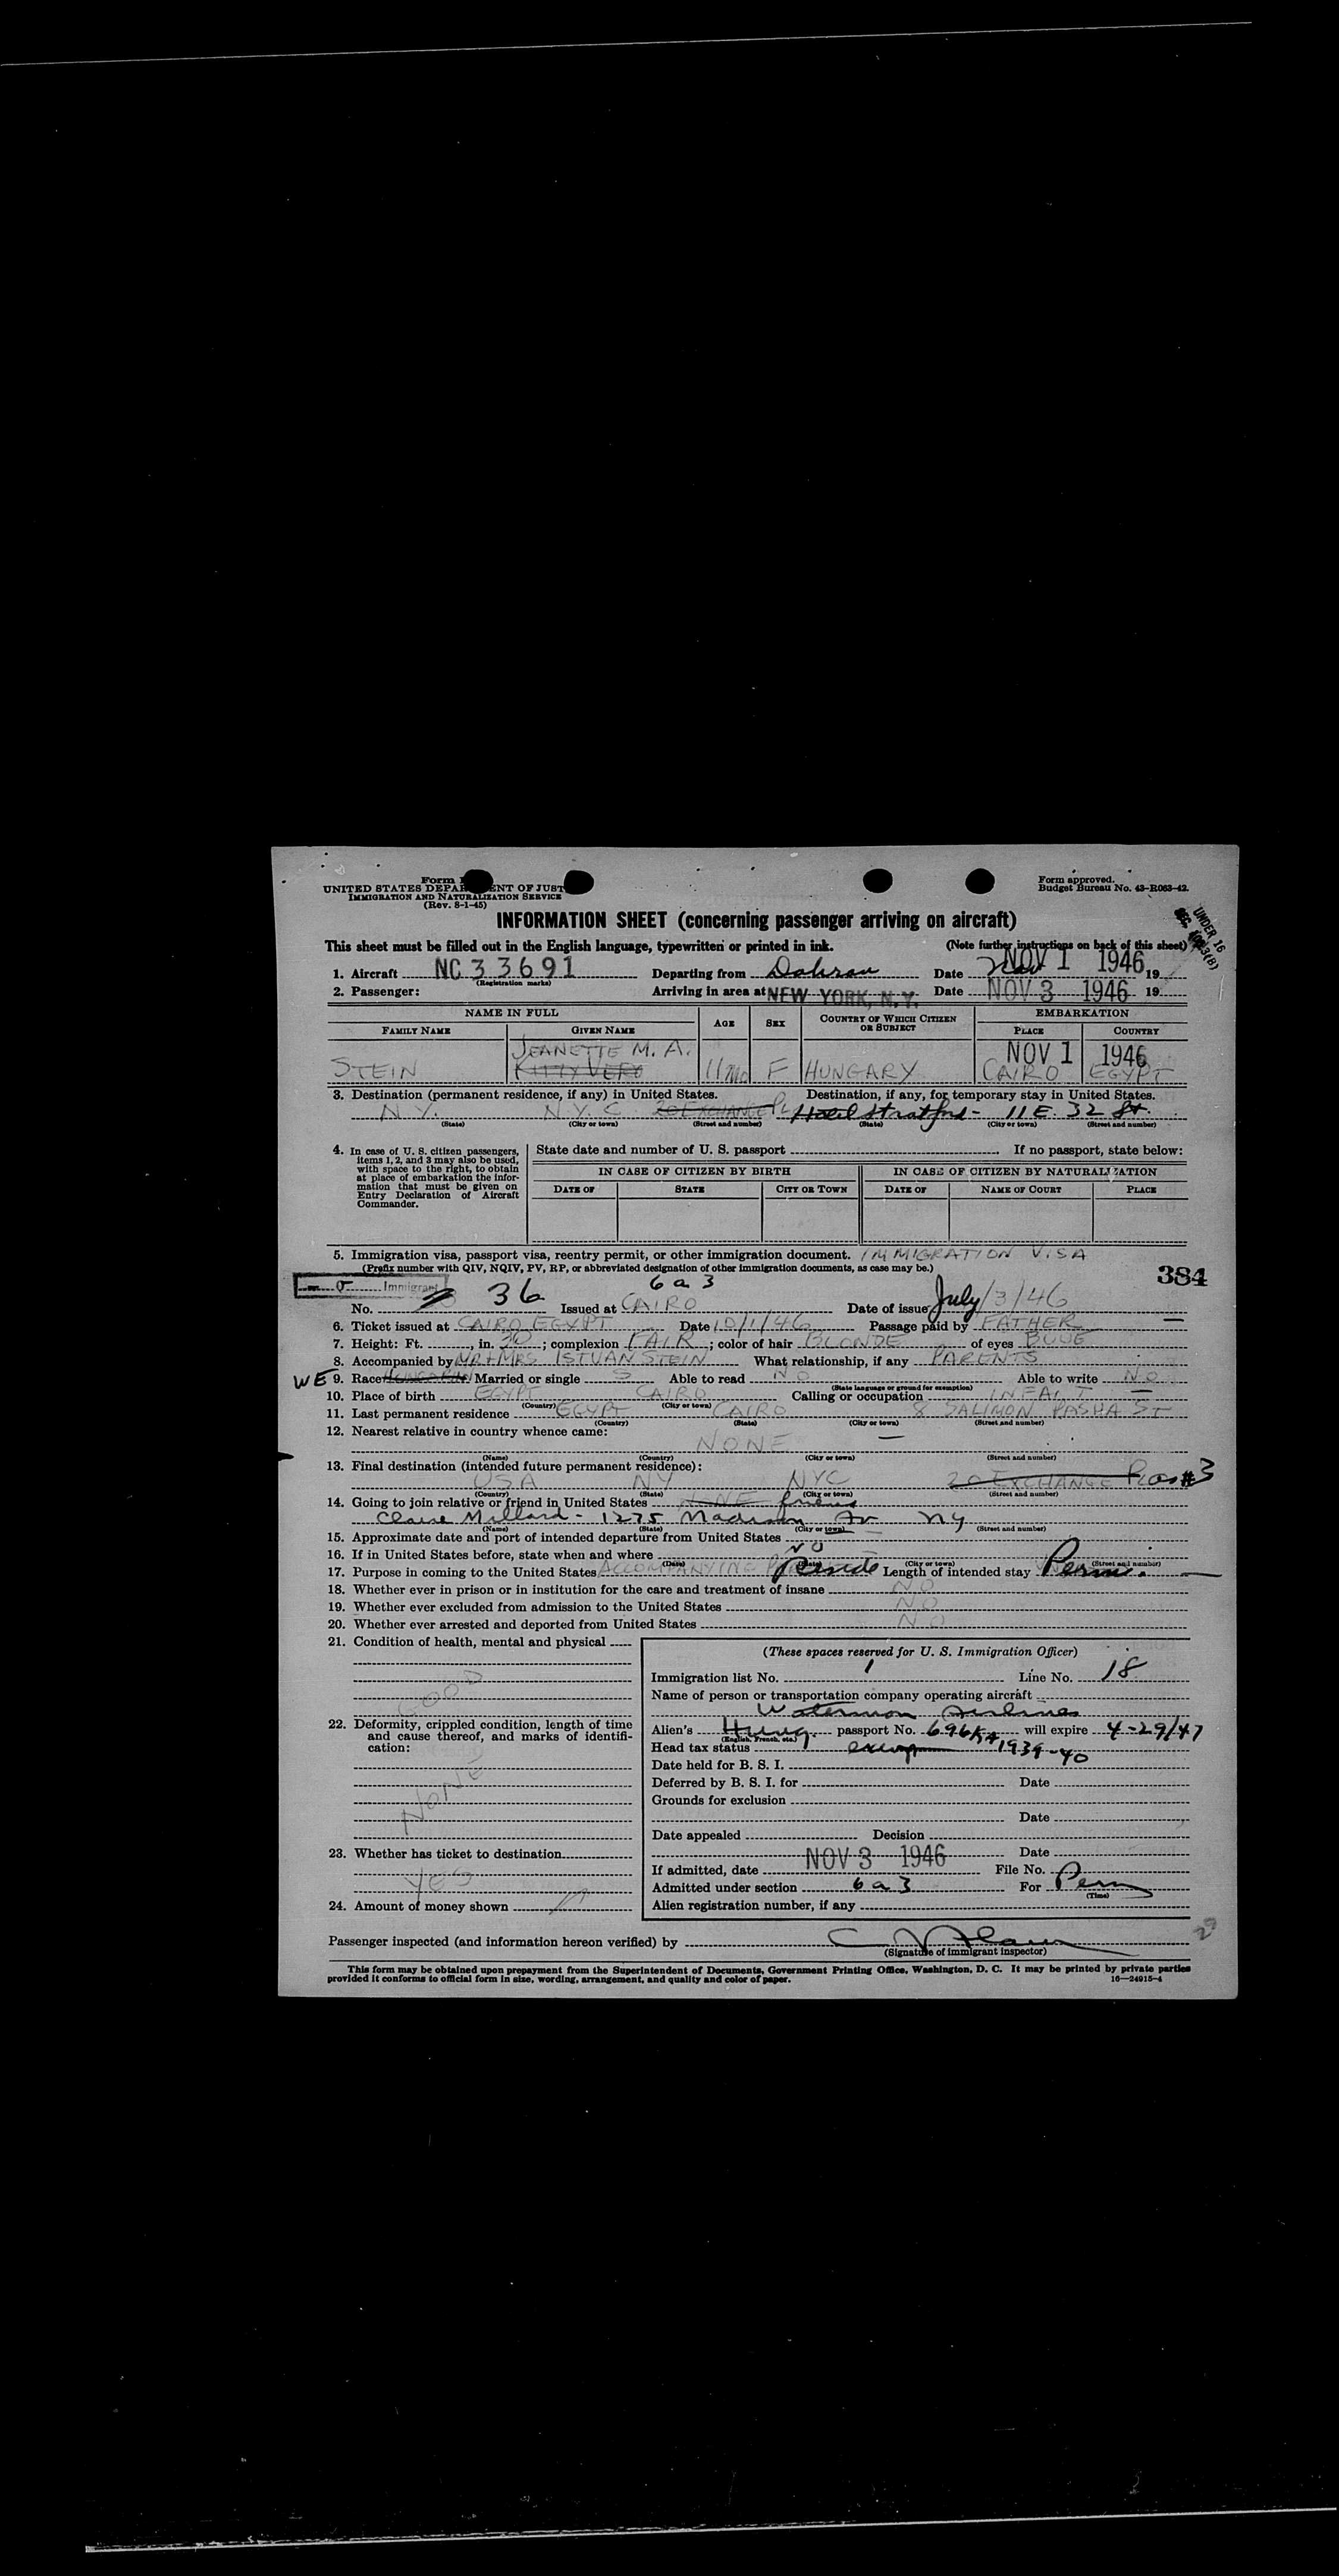 Form
UNITED STATES DEPARTMENT OF JUST
IMMIGRATION AND NATURALIZATION SERVICE
(Rev. 8-1-45)
Form approved.
Budget Bureau No. 43-R063-42.
INFORMATION SHEET (concerning passenger arriving on aircraft)
UNDER 16
This sheet must be filled out in the English language, typewritten or printed in ink. (Note further instructions on back of this sheet)
1. Aircraft NC 33691 Departing from Dahran Date NOV 1 1946 19
(Registration marks)
2. Passenger: Arriving in area at NEW YORK, N.Y. Date NOV 3 1946 19
NAME IN FULL AGE SEX COUNTRY OF WHICH CITIZEN OR SUBJECT EMBARKATION
FAMILY NAME GIVEN NAME PLACE COUNTRY
JEANETTE M. A. NOV 1 1946
STEIN KITTY VERO 11 mo F HUNGARY CAIRO EGYPT
3. Destination (permanent residence, if any) in United States. Destination, if any, for temporary stay in United States.
N.Y. N.Y.C. 20 EXCHANGE Pl Hotel Stratford - 11 E. 32 St.
(State) (City or town) (Street and number) (State) (City or town) (Street and number)
4. In case of U. S. citizen passengers, items 1, 2, and 3 may also be used, with space to the right, to obtain at place of embarkation the information that must be given on Entry Declaration of Aircraft Commander.
State date and number of U. S. passport If no passport, state below:
IN CASE OF CITIZEN BY BIRTH IN CASE OF CITIZEN BY NATURALIZATION
DATE OF STATE CITY OR TOWN DATE OF NAME OF COURT PLACE
5. Immigration visa, passport visa, reentry permit, or other immigration document. IMMIGRATION VISA
(Prefix number with QIV, NQIV, PV, RP, or abbreviated designation of other immigration documents, as case may be.)
384
Immigrant 6 a 3
No. 36 Issued at CAIRO Date of issue July/3/46
6. Ticket issued at CAIRO EGYPT Date 10/1/46 Passage paid by FATHER
7. Height: Ft. , in. 30 ; complexion FAIR ; color of hair BLONDE of eyes BLUE
8. Accompanied by MR + MRS ISTVAN STEIN What relationship, if any PARENTS
WE 9. Race HUNGARIAN Married or single S Able to read NO Able to write NO
(State language or ground for exemption)
10. Place of birth EGYPT CAIRO Calling or occupation INFANT
(Country) (City or town)
11. Last permanent residence EGYPT CAIRO 8 SALIMON PASHA ST
(Country) (State) (City or town) (Street and number)
12. Nearest relative in country whence came:
NONE —
(Name) (Country) (City or town) (Street and number)
13. Final destination (intended future permanent residence):
USA NY NYC 20 EXCHANGE Place #3
(Country) (State) (City or town) (Street and number)
14. Going to join relative or friend in United States NONE friend
Claire Millard - 1275 Madison Av NY
(Name) (State) (City or town) (Street and number)
15. Approximate date and port of intended departure from United States
16. If in United States before, state when and where NO
(Date) (State) (City or town) (Street and number)
17. Purpose in coming to the United States ACCOMPANYING reside Length of intended stay Perm. —
18. Whether ever in prison or in institution for the care and treatment of insane NO
19. Whether ever excluded from admission to the United States NO
20. Whether ever arrested and deported from United States NO
21. Condition of health, mental and physical
GOOD
22. Deformity, crippled condition, length of time and cause thereof, and marks of identification:
NONE
23. Whether has ticket to destination
YES
24. Amount of money shown
(These spaces reserved for U. S. Immigration Officer)
Immigration list No. 1 Line No. 18
Name of person or transportation company operating aircraft
Waterman Airlines
Alien's Hung. passport No. 696KA 1939-40 will expire 4-29/47
(English, French, etc.)
Head tax status exempt
Date held for B. S. I.
Deferred by B. S. I. for Date
Grounds for exclusion
Date
Date appealed Decision
Date
If admitted, date NOV 3 1946 File No.
Admitted under section 6 a 3 For Perm
(Time)
Alien registration number, if any
Passenger inspected (and information hereon verified) by
(Signature of immigrant inspector)
This form may be obtained upon prepayment from the Superintendent of Documents, Government Printing Office, Washington, D. C. It may be printed by private parties
provided it conforms to official form in size, wording, arrangement, and quality and color of paper. 16—24915-4